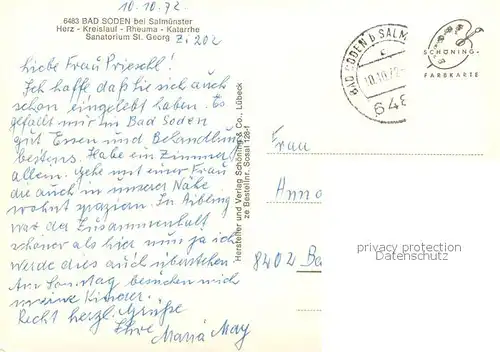 10.10.72
6483 BAD SODEN bei Salmünster
Herz - Kreislauf - Rheuma - Katarrhe
Sanatorium St. Georg
Zi 202
Liebe Frau Prieschl!
Ich hoffe daß sie sich auch
schon eingelebt haben. Es
gefällt mir in Bad Soden
gut Essen und Behandlung
bestens. Habe ein Zimmer
allein. Gehe mit einer Frau
die auch in unserer Nähe
wohnt spazieren. In Aibling
war der Zusammenhalt
schöner als hier nun ja ich
werde dies auch überstehen
Am Sonntag besuchen mich
meine Kinder.
Recht herzl. Grüße
Ihre Maria May
Hersteller und Verlag Schöning & Co., Lübeck
ze Bestellnr. Sosal 128-1
BAD SODEN b SALM
10.10.72
648
SCHÖNING-
FARBKARTE
Frau
Anno
8402 Ba
privacy protection
watermark